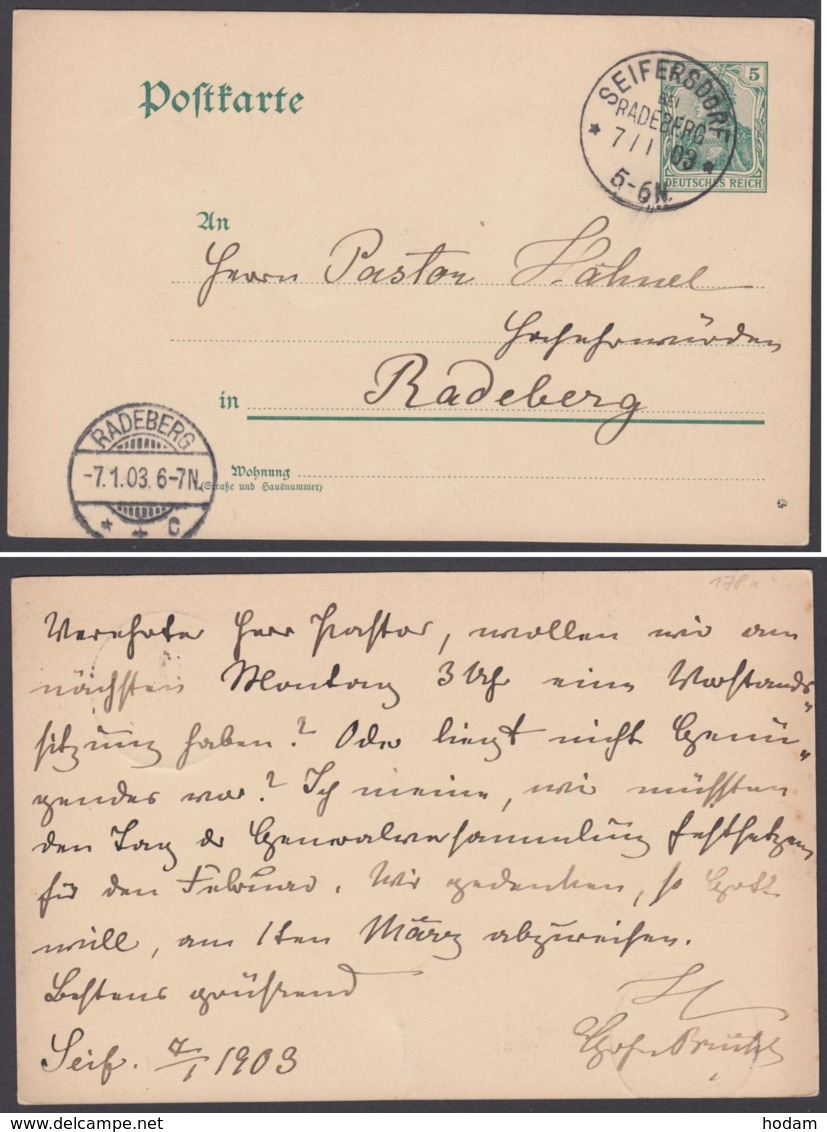 Postkarte
SEIFERSDORF
BEI
RADEBERG
7/1 03
5-6N.
5
DEUTSCHES REICH
An
Herrn Pastor Hähnel
Hochehrwürden
in Radeberg
RADEBERG
-7.1.03. 6-7N.
* * C
Wohnung
(Straße und Hausnummer)
178
Verehrter Herr Pastor, wollen wir am
nächsten Montag 3 Uhr eine Vorstands-
sitzung haben? Oder liegt nicht Genü-
gendes vor? Ich meine, wir müssten
den Tag der Generalversammlung festsetzen
für den Februar. Wir gedenken, so Gott
will, am 1ten März abzureisen.
Bestens grüßend
Seif. 7/1 1903
Brühl
delcampe.net
hodam